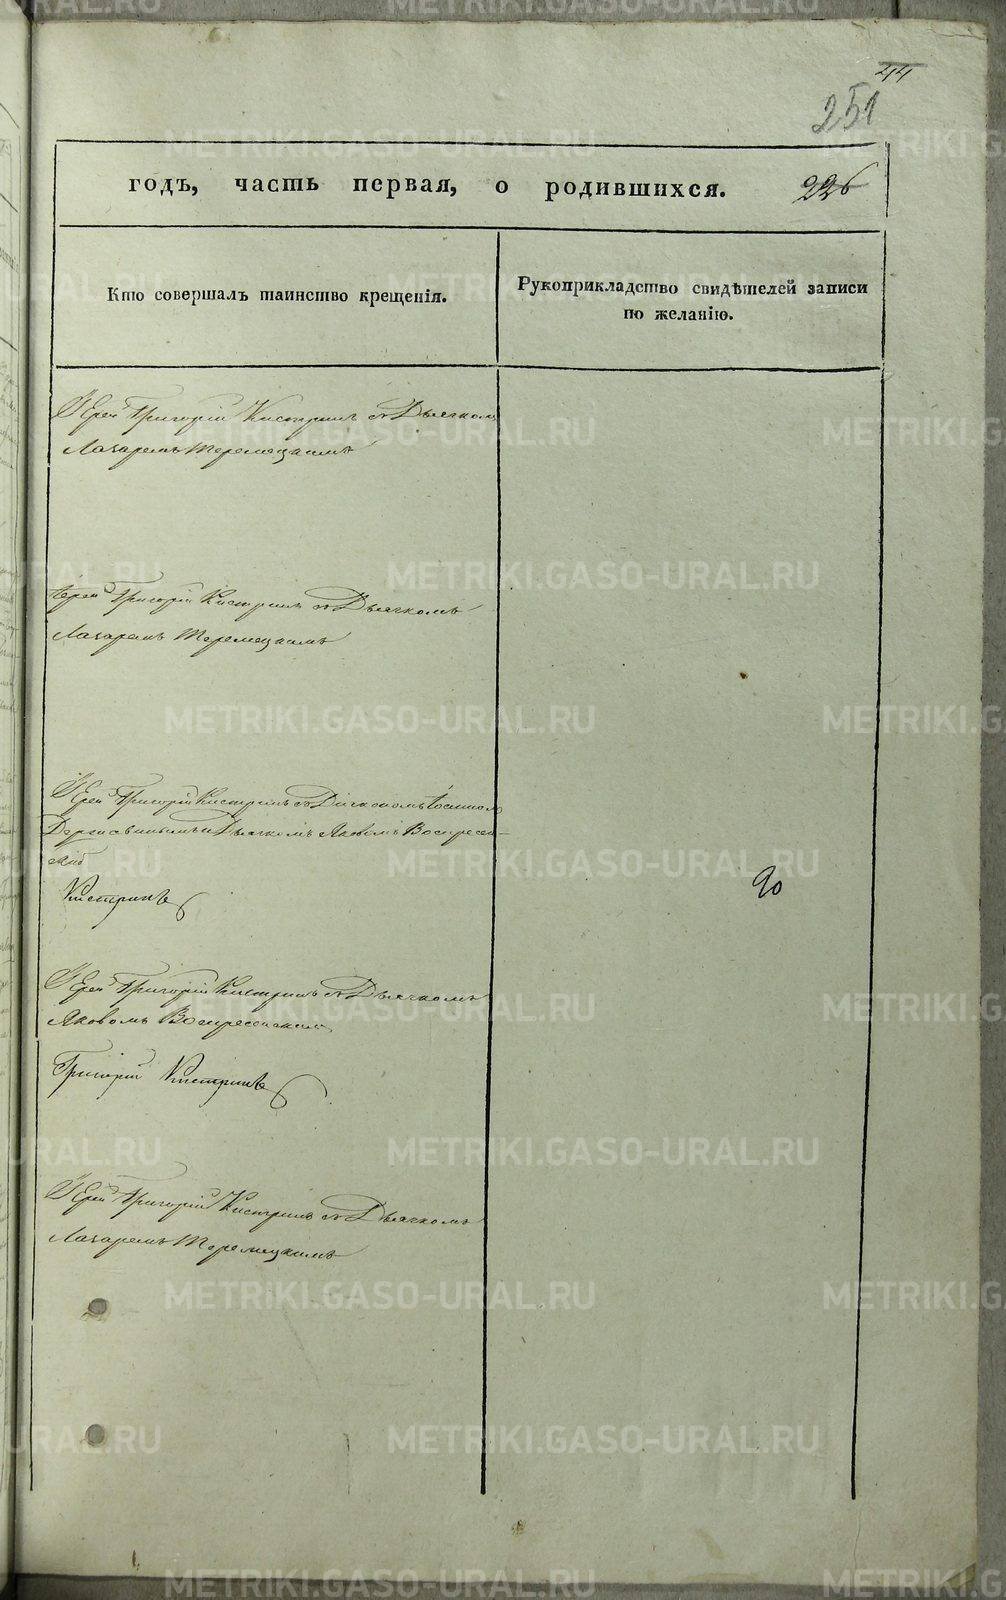 44
251
годъ, часть первая, о родившихся. 226
Кто совершалъ таинство крещенія.
Рукоприкладство свидѣтелей записи
по желанію.
Іерей Григорій Кистринъ съ Дьячкомъ
Лазаремъ Теремецкимъ
Іерей Григорій Кистринъ съ Дьячкомъ
Лазаремъ Теремецкимъ
Іерей Григорій Кистринъ съ Діакономъ Іоанномъ
Державинымъ и Дьячкомъ Яковомъ Воскресен-
Кистринъ
90
Іерей Григорій Кистринъ съ Дьячкомъ
Яковомъ Воскресенскимъ
Григорій Кистринъ
Іерей Григорій Кистринъ съ Дьячкомъ
Лазаремъ Теремецкимъ
METRIKI.GASO-URAL.RU